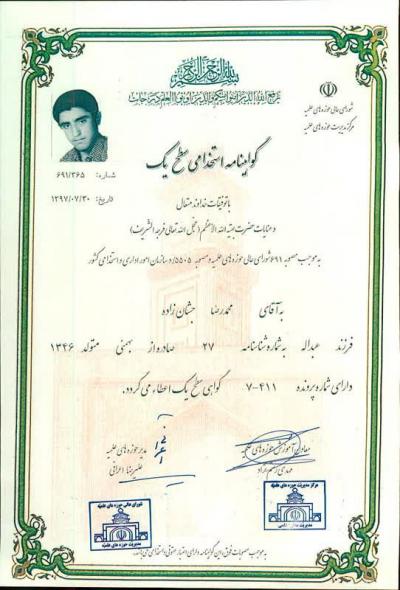 بسم الله الرحمن الرحیم
یرفع الله الذین آمنوا منکم والذین اوتوا العلم درجات
شورای عالی حوزه های علمیه
مرکز مدیریت حوزه های علمیه
گواهینامه استخدامی سطح یک
شماره: ۶۹۱/۳۶۵
تاریخ: ۱۳۹۷/۰۷/۳۰
با توفیقات خداوند متعال
و عنایات حضرت بقیة الله الاعظم (عجل الله تعالی فرجه الشریف)
به موجب مصوبه ۶۹۱ شورای عالی حوزه های علمیه و مصوبه ۵۵۰۵/د سازمان امور اداری و استخدامی کشور
به آقای محمدرضا جشان زاده
فرزند عبداله به شماره شناسنامه ۲۷ صادره از بهمئی متولد ۱۳۴۶
دارای شماره پرونده ۷-۴۱۱ گواهی سطح یک اعطاء می گردد.
معاون آموزش حوزه های علمیه
مدیر حوزه های علمیه
علیرضا اعرافی
شورای عالی حوزه های علمیه
مدیریت حوزه های علمیه
مرکز مدیریت حوزه های علمیه
به موجب مصوبات فوق، این گواهینامه دارای اعتبار حقوقی و استخدامی می باشد.